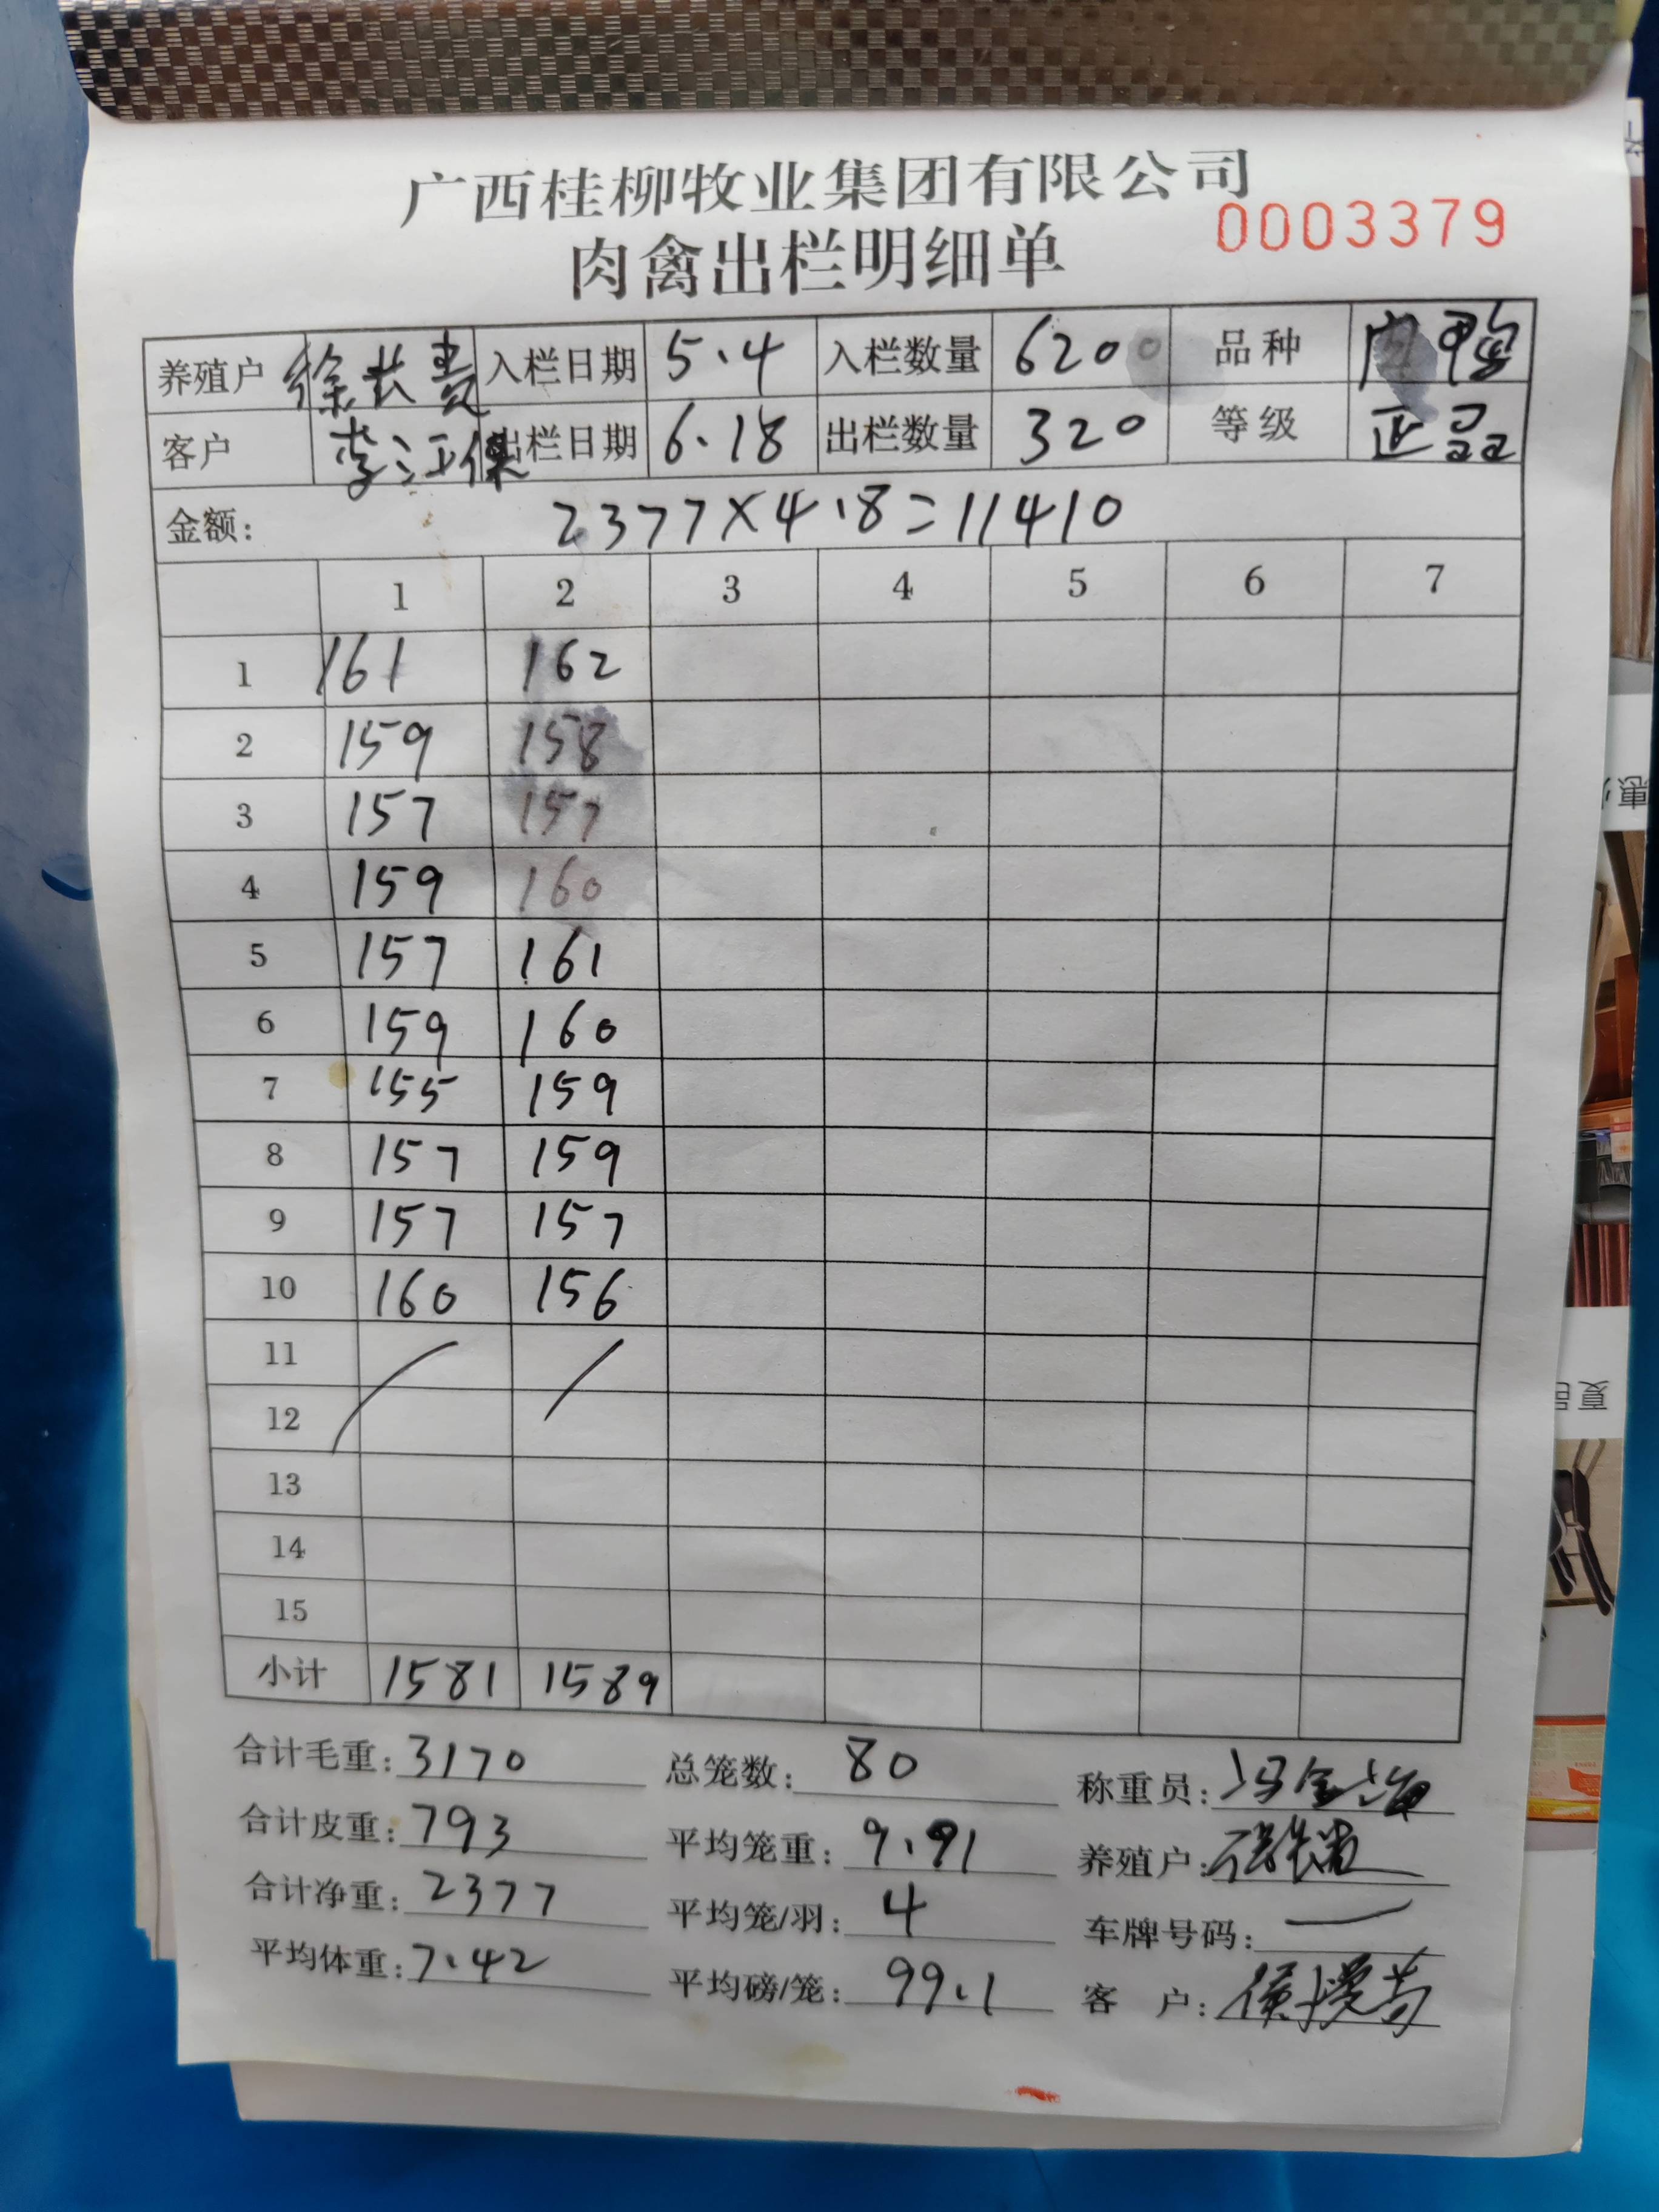 广西桂柳牧业集团有限公司
0003379
肉禽出栏明细单
养殖户 徐长贵 入栏日期 5.4 入栏数量 6200 品种 肉鸭
客户 李江保 出栏日期 6.18 出栏数量 320 等级 正品
金额: 2377×4.8=11410
1 2 3 4 5 6 7
1 161 162
2 159 158
3 157 157
4 159 160
5 157 161
6 159 160
7 155 159
8 157 159
9 157 157
10 160 156
11
12
13
14
15
小计 1581 1589
合计毛重: 3170 总笼数: 80 称重员: 冯金海
合计皮重: 793 平均笼重: 9.91 养殖户:
合计净重: 2377 平均笼/羽: 4 车牌号码: —
平均体重: 7.42 平均磅/笼: 99.1 客 户: